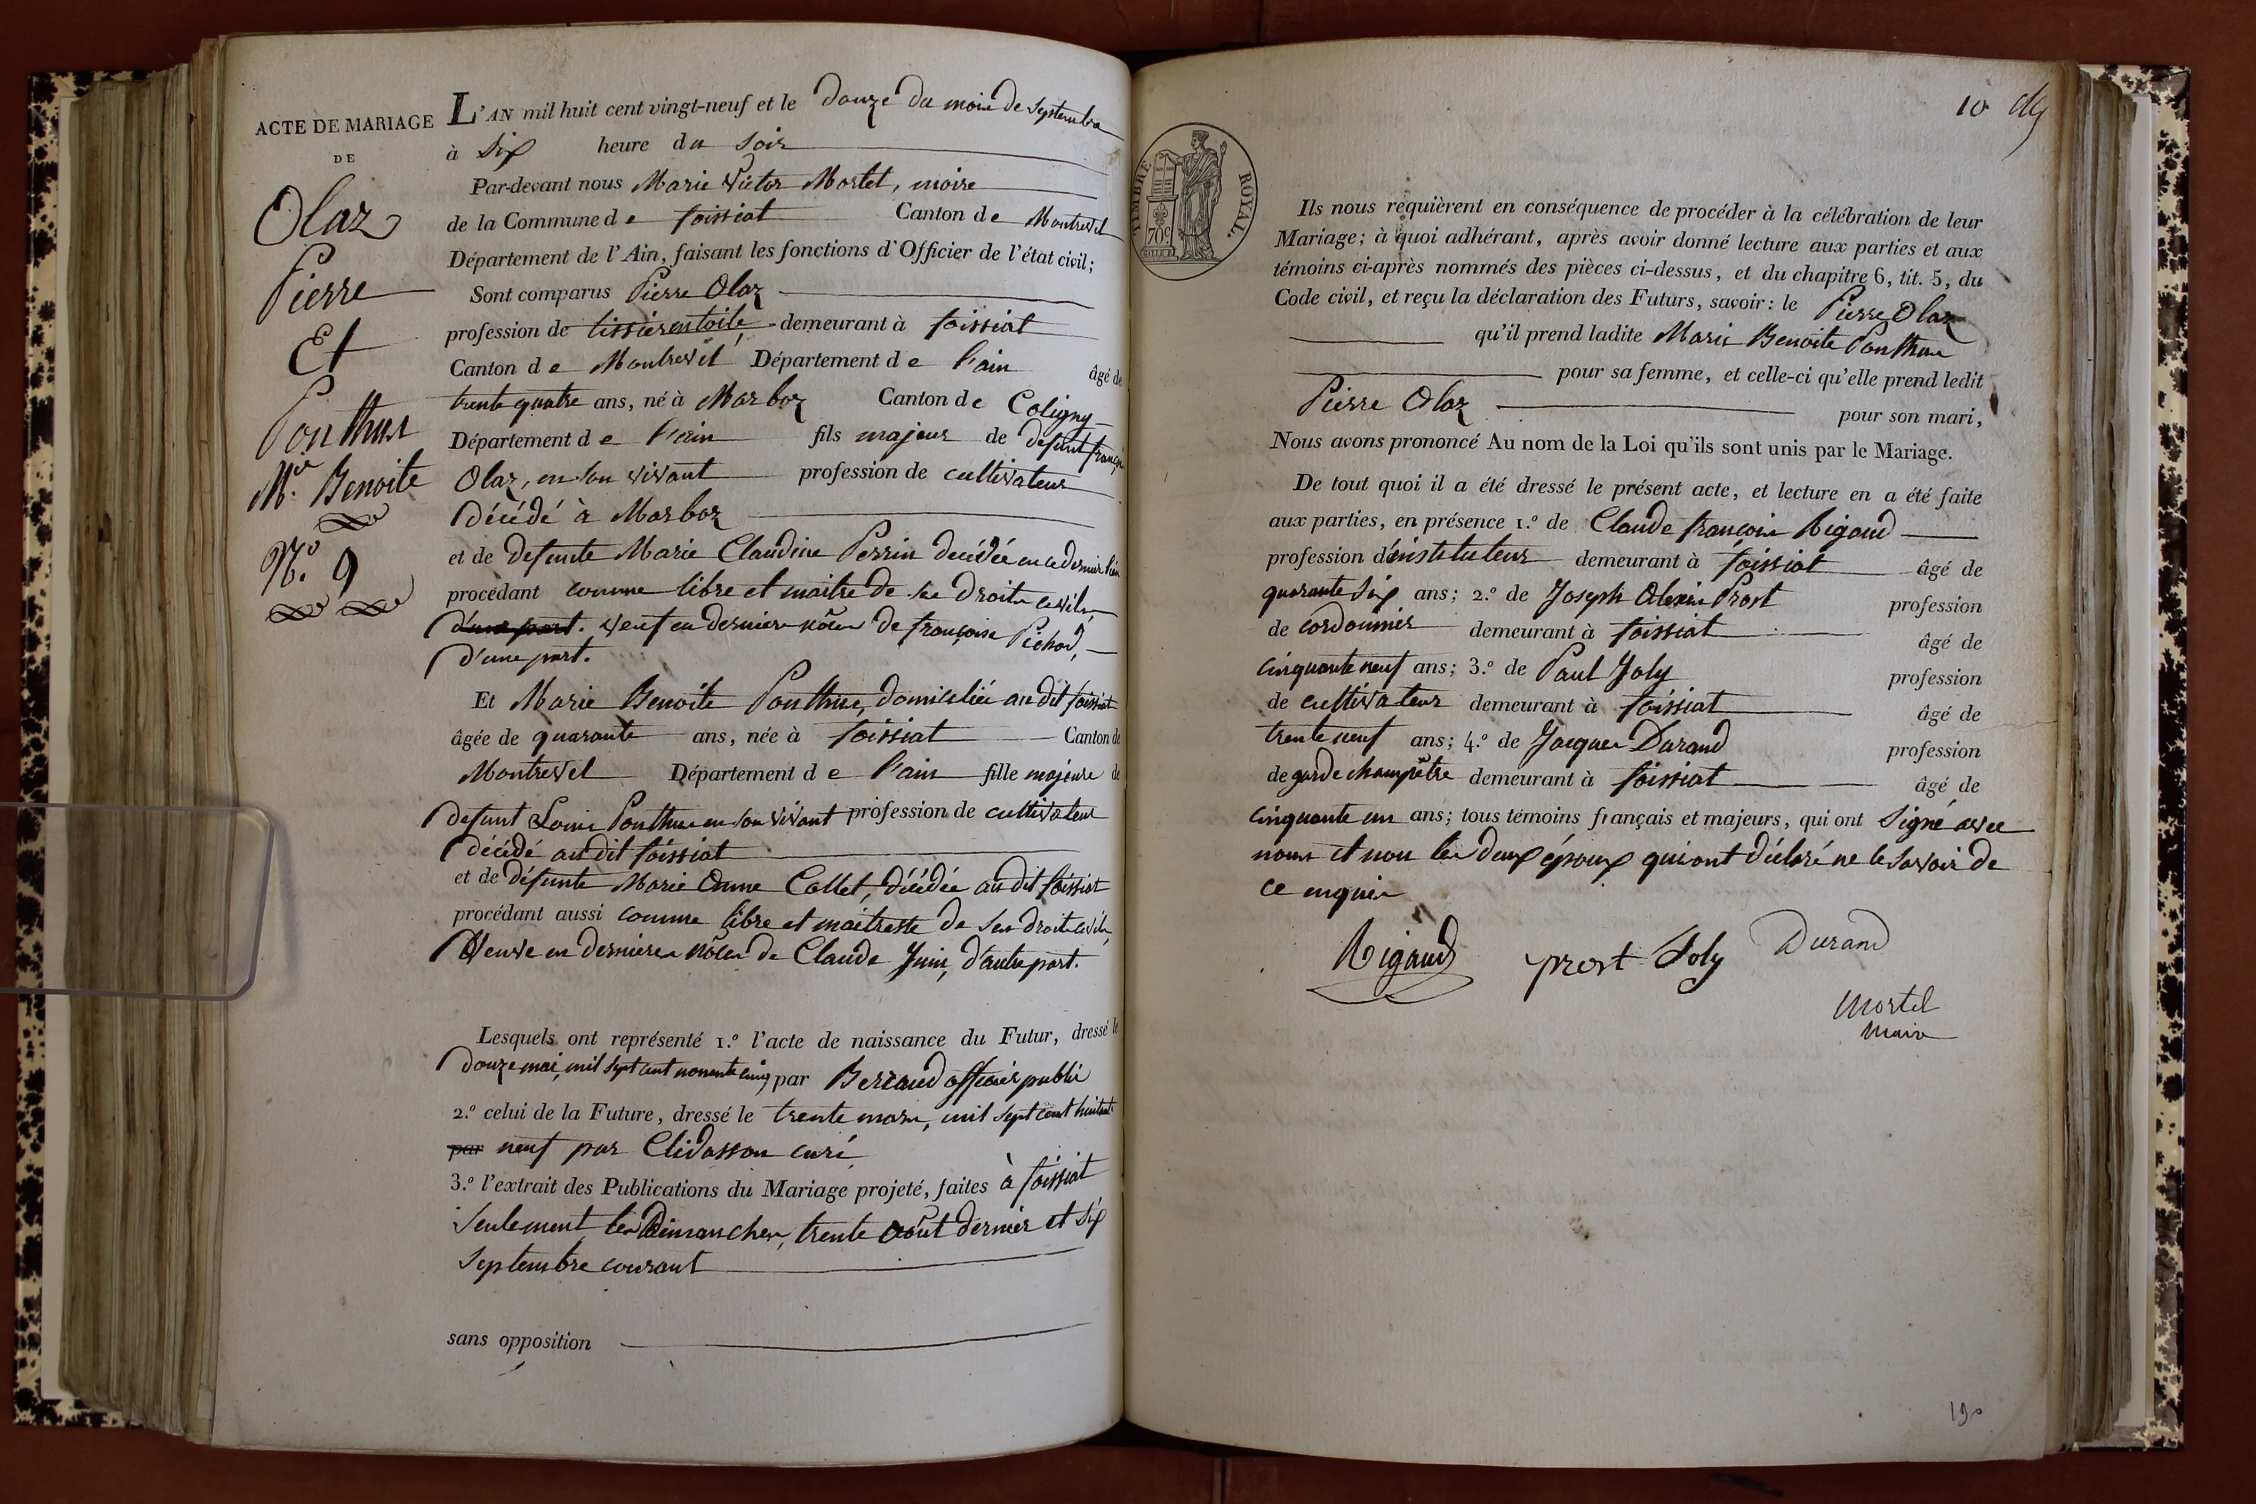 ACTE DE MARIAGE
DE
Olaz
Pierre
Et
Ponthus
M.ie Benoite
N.o 9
L'AN mil huit cent vingt-neuf et le douze du mois de septembre
à six heure du soir
Par-devant nous Marie Victor Mortel, maire
de la Commune de foissiat Canton de Montrevel
Département de l'Ain, faisant les fonctions d'Officier de l'état civil;
Sont comparus Pierre Olaz
profession de tissier en toile, demeurant à foissiat
Canton de Montrevel Département de l'ain âgé de
trente quatre ans, né à Marboz Canton de Coligny
Département de l'ain fils majeur de defunt françois
Olaz, en son vivant profession de cultivateur
décédé à Marboz
et de defunte Marie Claudine Perrin decédée en ce dernier lieu
procédant comme libre et maitre de ses droits civils,
d'une part. veuf en dernieres nôces de françoise Pichod,
d'une part.
Et Marie Benoite Ponthus, domiciliée au dit foissiat
âgée de quarante ans, née à foissiat Canton de
Montrevel Département de l'ain fille majeure de
defunt Louis Ponthus en son vivant profession de cultivateur
décédé au dit foissiat
et de défunte Marie Anne Collet, décédée au dit foissiat
procédant aussi comme libre et maitresse de ses droits civils,
Veuve en dernieres nôces de Claude Juin, d'autre part.
Lesquels ont représenté 1.o l'acte de naissance du Futur, dressé le
douze mai, mil sept cent nonante cinq par Beraud officier public
2.o celui de la Future, dressé le trente mars, mil sept cent huitante
par neuf par Clidasson curé
3.o l'extrait des Publications du Mariage projeté, faites à foissiat
seulement les Dimanches, trente août dernier et six
septembre courant
sans opposition
10
TIMBRE ROYAL.
70c
Ils nous requièrent en conséquence de procéder à la célébration de leur
Mariage; à quoi adhérant, après avoir donné lecture aux parties et aux
témoins ci-après nommés des pièces ci-dessus, et du chapitre 6, tit. 5, du
Code civil, et reçu la déclaration des Futurs, savoir: le Pierre Olaz
qu'il prend ladite Marie Benoite Ponthus
pour sa femme, et celle-ci qu'elle prend ledit
Pierre Olaz pour son mari,
Nous avons prononcé Au nom de la Loi qu'ils sont unis par le Mariage.
De tout quoi il a été dressé le présent acte, et lecture en a été faite
aux parties, en présence 1.o de Claude françois Rigaud
profession d'instituteur demeurant à foissiat âgé de
quarante six ans; 2.o de Joseph Alexis Prost profession
de cordonnier demeurant à foissiat âgé de
cinquante neuf ans; 3.o de Paul Joly profession
de cultivateur demeurant à foissiat âgé de
trente neuf ans; 4.o de Jacques Durand profession
de garde champêtre demeurant à foissiat âgé de
cinquante un ans; tous témoins français et majeurs, qui ont signé avec
nous et non les deux époux qui ont déclaré ne le savoir de
ce enquis
Rigaud prost Joly Durand
Mortel
Maire
190